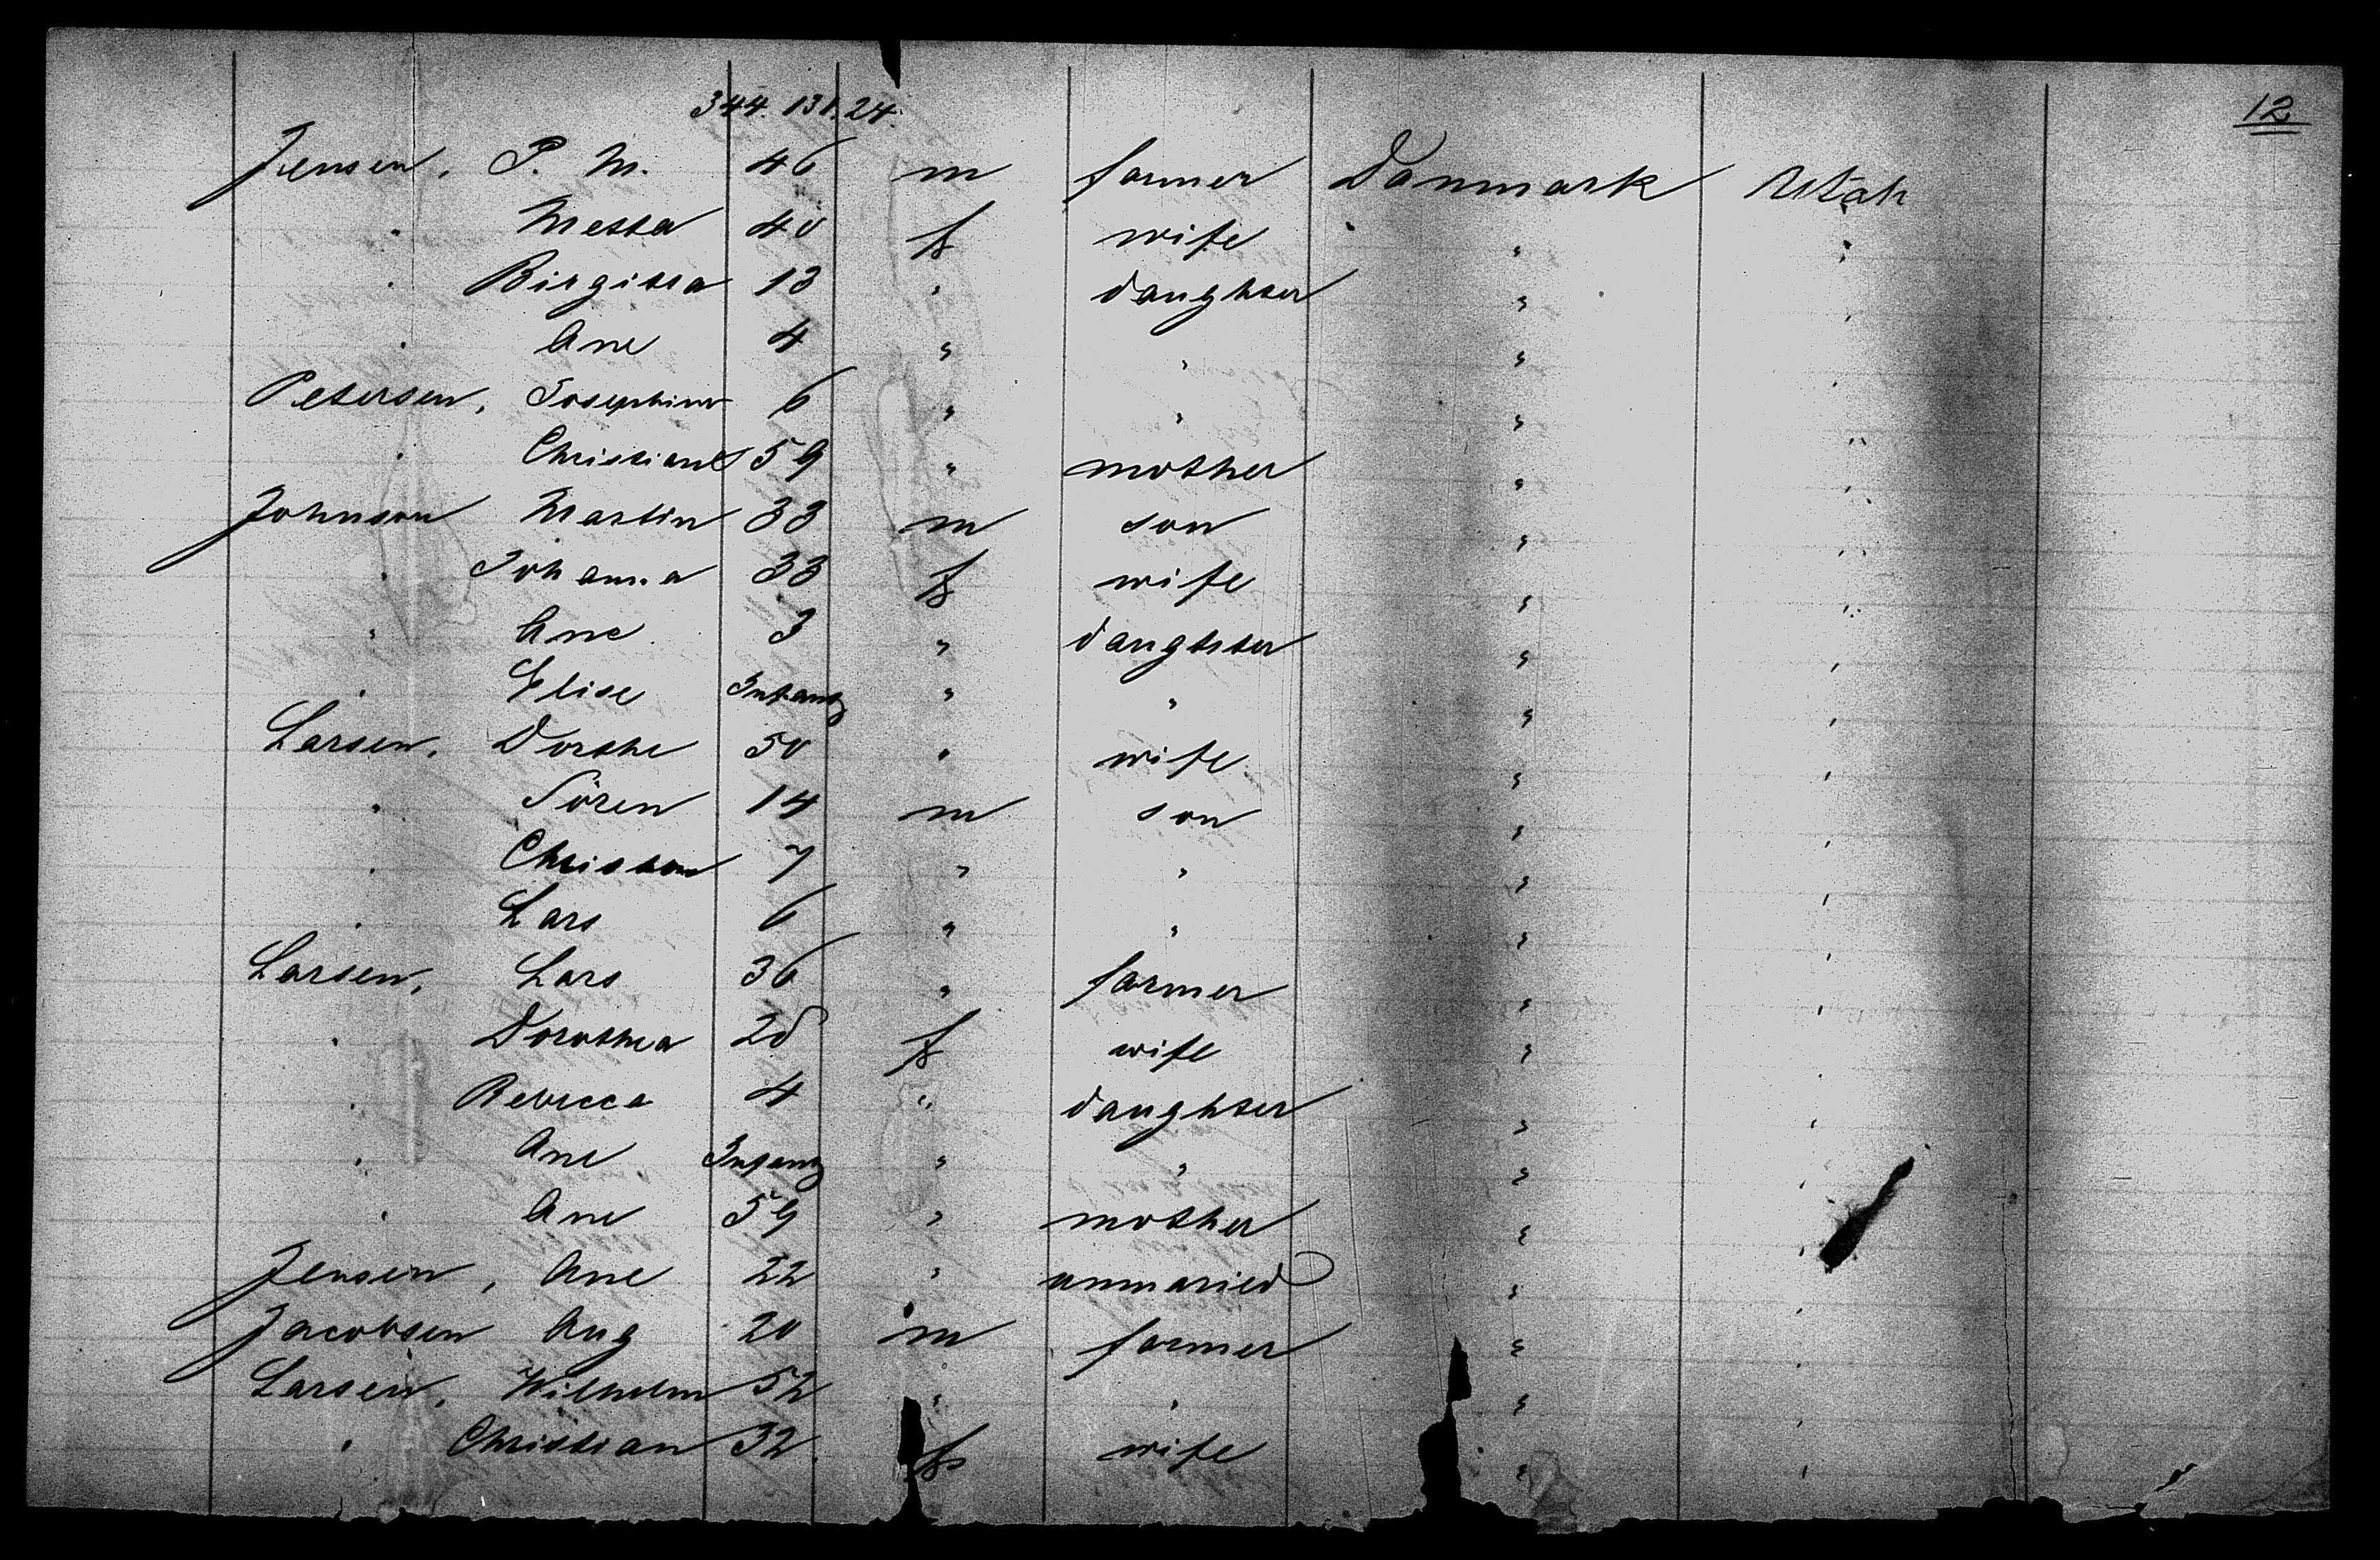 344. 131. 24.
12
Jensen, P. M. 46 m farmer Danmark Utah
" Metta 40 f wife " "
" Birgitta 13 " daughter " "
" Ane 4 " " " "
Petersen, Josephine 6 " " " "
" Christiane 59 " mother " "
Johnson Martin 33 m son " "
" Johanna 33 f wife " "
" Ane 3 " daughter " "
" Elise Infant " " " "
Larsen, Dorthe 50 " wife " "
" Sören 14 m son " "
" Christian 7 " " " "
" Lars 6 " " " "
Larsen, Lars 36 " farmer " "
" Dorothea 28 f wife " "
" Rebecca 4 " daughter " "
" Ane Infant " " " "
" Ane 59 " mother " "
Jensen, Ane 22 " unmaried " "
Jacobsen Aug 20 m farmer " "
Larsen, Wilhelm 52 " " " "
" Christian 32 f wife " "